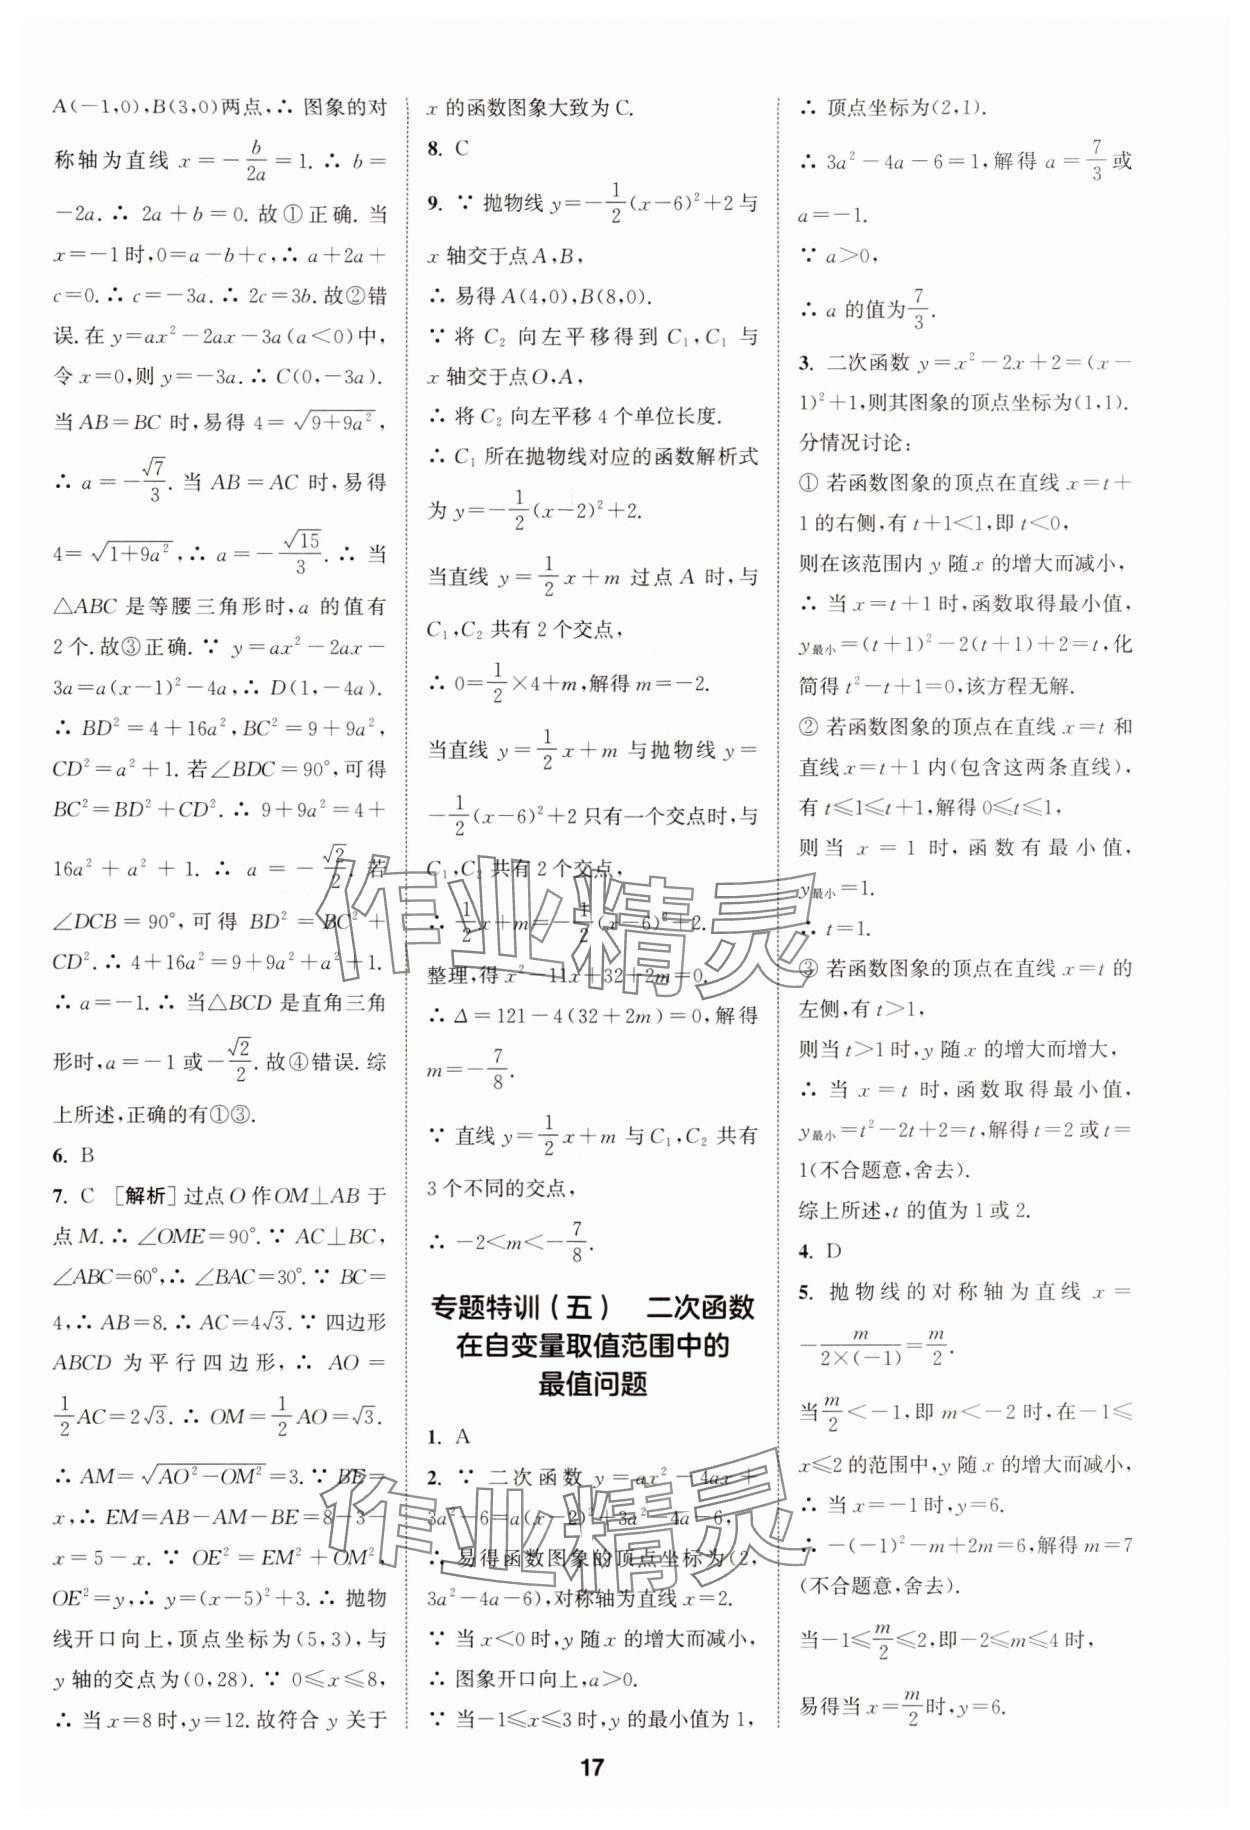 A(-1,0),B(3,0)两点,∴ 图象的对
称轴为直线 x=-b/2a=1.∴ b=
-2a.∴ 2a+b=0.故①正确.当
x=-1时,0=a-b+c,∴ a+2a+
c=0.∴ c=-3a.∴ 2c=3b.故②错
误.在 y=ax²-2ax-3a(a<0)中,
令 x=0,则 y=-3a.∴ C(0,-3a).
当 AB=BC 时,易得 4=√(9+9a²),
∴ a=-√7/3.当 AB=AC 时,易得
4=√(1+9a²),∴ a=-√15/3.∴ 当
△ABC 是等腰三角形时,a 的值有
2个.故③正确.∵ y=ax²-2ax-
3a=a(x-1)²-4a,∴ D(1,-4a).
∴ BD²=4+16a²,BC²=9+9a²,
CD²=a²+1.若∠BDC=90°,可得
BC²=BD²+CD².∴ 9+9a²=4+
16a²+a²+1.∴ a=-√2/2.若
∠DCB=90°,可得 BD²=BC²+
CD².∴ 4+16a²=9+9a²+a²+1.
∴ a=-1.∴ 当△BCD 是直角三角
形时,a=-1或-√2/2.故④错误.综
上所述,正确的有①③.
6. B
7. C [解析]过点 O 作 OM⊥AB 于
点 M.∴ ∠OME=90°.∵ AC⊥BC,
∠ABC=60°,∴ ∠BAC=30°.∵ BC=
4,∴ AB=8.∴ AC=4√3.∵ 四边形
ABCD 为平行四边形,∴ AO=
1/2AC=2√3.∴ OM=1/2AO=√3.
∴ AM=√(AO²-OM²)=3.∵ BE=
x,∴ EM=AB-AM-BE=8-3-
x=5-x.∵ OE²=EM²+OM²,
OE²=y,∴ y=(x-5)²+3.∴ 抛物
线开口向上,顶点坐标为(5,3),与
y 轴的交点为(0,28).∵ 0≤x≤8,
∴ 当 x=8时,y=12.故符合 y 关于
x 的函数图象大致为 C.
8. C
9. ∵ 抛物线 y=-1/2(x-6)²+2与
x 轴交于点 A,B,
∴ 易得 A(4,0),B(8,0).
∵ 将 C₂ 向左平移得到 C₁,C₁ 与
x 轴交于点 O,A,
∴ 将 C₂ 向左平移 4 个单位长度.
∴ C₁ 所在抛物线对应的函数解析式
为 y=-1/2(x-2)²+2.
当直线 y=1/2x+m 过点 A 时,与
C₁,C₂ 共有 2 个交点,
∴ 0=1/2×4+m,解得 m=-2.
当直线 y=1/2x+m 与抛物线 y=
-1/2(x-6)²+2 只有一个交点时,与
C₁,C₂ 共有 2 个交点,
∴ 1/2x+m=-1/2(x-6)²+2.
整理,得 x²-11x+32+2m=0.
∴ Δ=121-4(32+2m)=0,解得
m=-7/8.
∵ 直线 y=1/2x+m 与 C₁,C₂ 共有
3 个不同的交点,
∴ -2<m<-7/8.
专题特训(五) 二次函数
在自变量取值范围中的
最值问题
1. A
2. ∵ 二次函数 y=ax²-4ax+
3a²-6=a(x-2)²+3a²-4a-6,
∴ 易得函数图象的顶点坐标为(2,
3a²-4a-6),对称轴为直线 x=2.
∵ 当 x<0 时,y 随 x 的增大而减小,
∴ 图象开口向上,a>0.
∵ 当-1≤x≤3时,y 的最小值为 1,
∴ 顶点坐标为(2,1).
∴ 3a²-4a-6=1,解得 a=7/3或
a=-1.
∵ a>0,
∴ a 的值为7/3.
3. 二次函数 y=x²-2x+2=(x-
1)²+1,则其图象的顶点坐标为(1,1).
分情况讨论:
① 若函数图象的顶点在直线 x=t+
1 的右侧,有 t+1<1,即 t<0,
则在该范围内 y 随 x 的增大而减小,
∴ 当 x=t+1 时,函数取得最小值,
y最小=(t+1)²-2(t+1)+2=t,化
简得 t²-t+1=0,该方程无解.
② 若函数图象的顶点在直线 x=t 和
直线 x=t+1 内(包含这两条直线),
有 t≤1≤t+1,解得 0≤t≤1,
则当 x=1 时,函数有最小值,
y最小=1.
∴ t=1.
③ 若函数图象的顶点在直线 x=t 的
左侧,有 t>1,
则当 t>1 时,y 随 x 的增大而增大,
∴ 当 x=t 时,函数取得最小值,
y最小=t²-2t+2=t,解得 t=2 或 t=
1(不合题意,舍去).
综上所述,t 的值为 1 或 2.
4. D
5. 抛物线的对称轴为直线 x=
-m/(2×(-1))=m/2.
当m/2<-1,即 m<-2 时,在-1≤
x≤2 的范围中,y 随 x 的增大而减小,
∴ 当 x=-1 时,y=6.
∴ -(-1)²-m+2m=6,解得 m=7
(不合题意,舍去).
当-1≤m/2≤2,即-2≤m≤4 时,
易得当 x=m/2时,y=6.
17
作业精灵
作业精灵